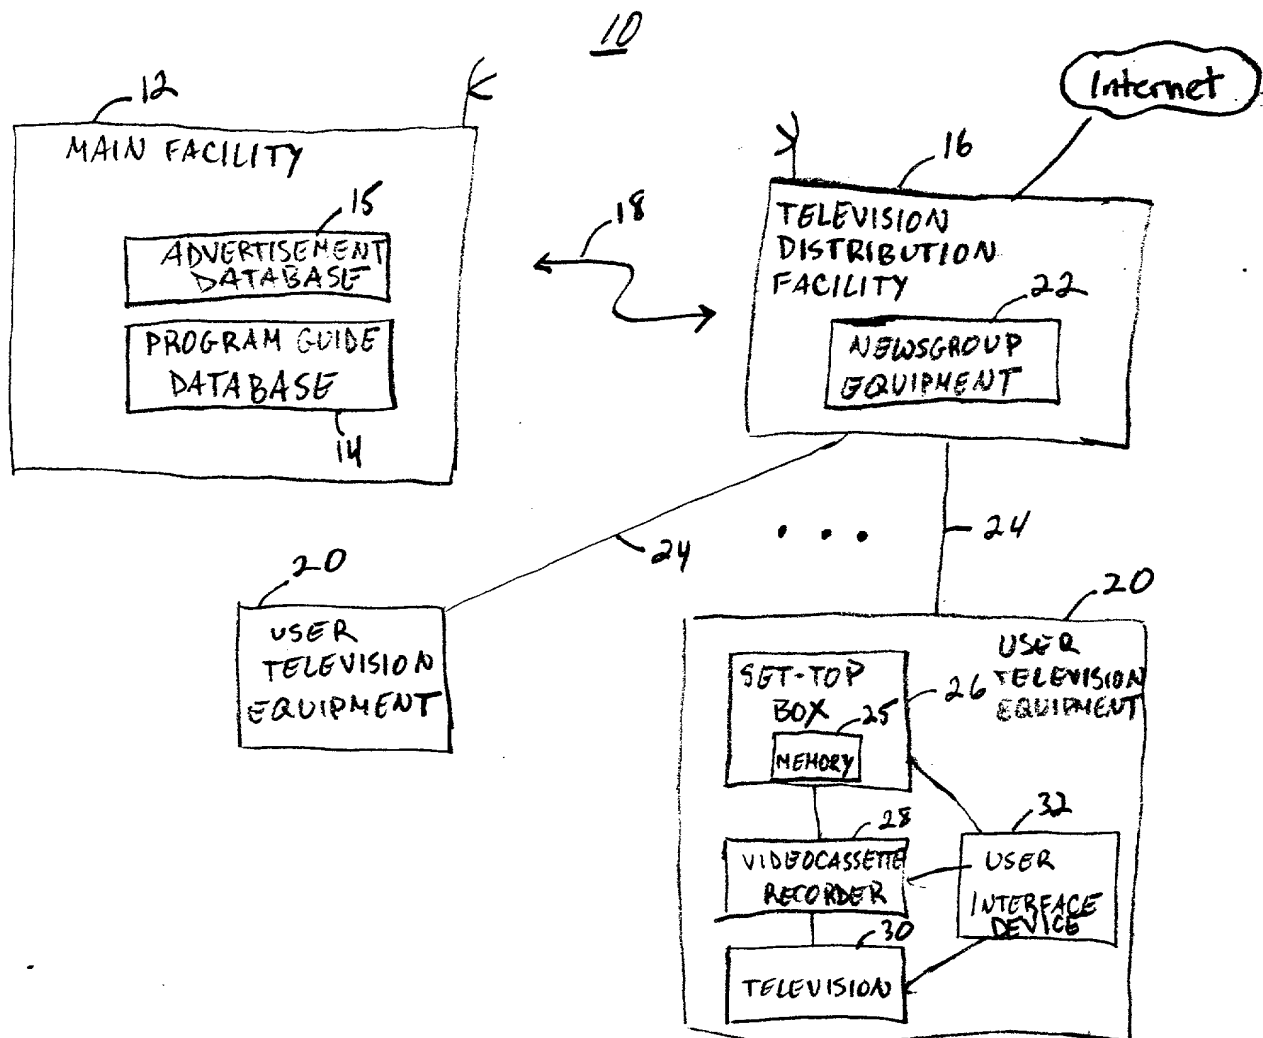 10
Internet
12
MAIN FACILITY
15
ADVERTISEMENT
DATABASE
PROGRAM GUIDE
DATABASE
14
18
16
TELEVISION
DISTRIBUTION
FACILITY
22
NEWSGROUP
EQUIPMENT
24
24
20
USER
TELEVISION
EQUIPMENT
20
USER
TELEVISION
EQUIPMENT
SET-TOP
BOX
26
25
MEMORY
28
VIDEOCASSETTE
RECORDER
32
USER
INTERFACE
DEVICE
30
TELEVISION